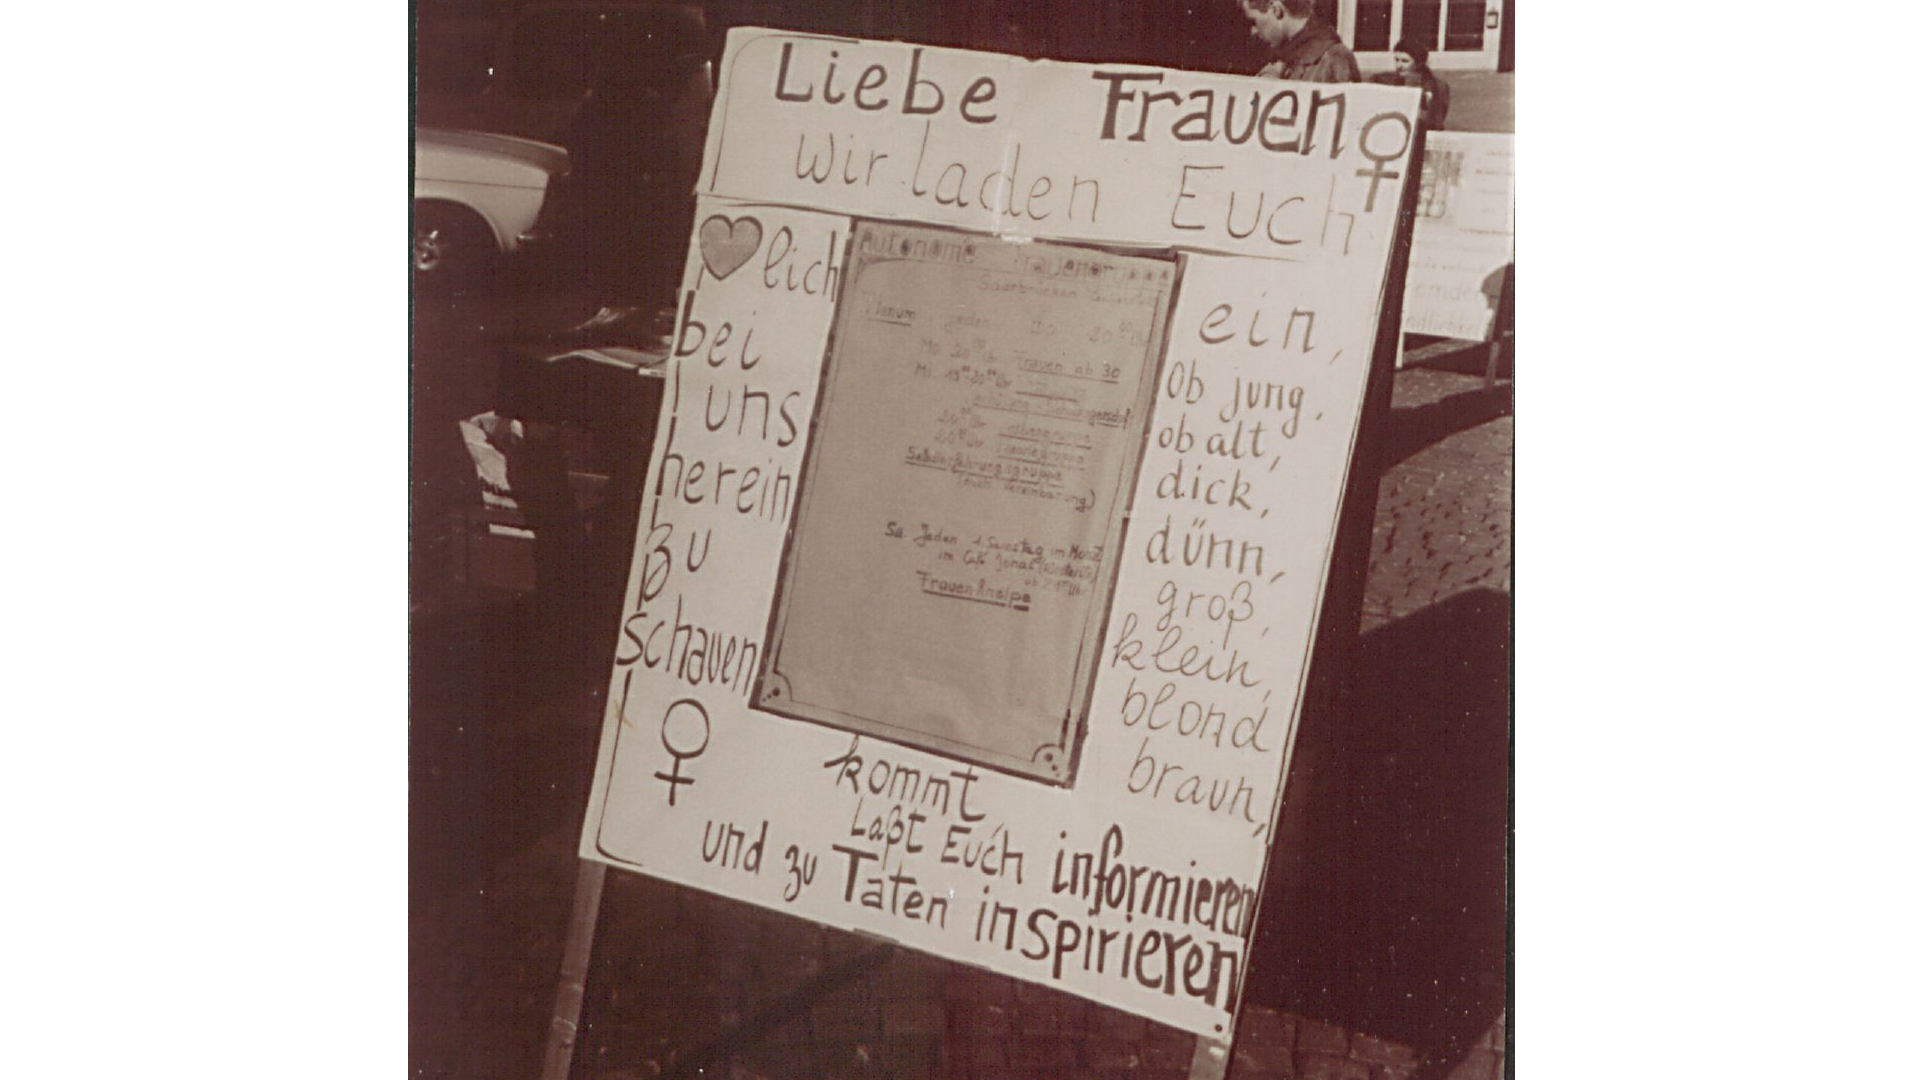 Liebe Frauen
wir laden Euch
lich
bei
uns
herein
zu
schauen
ein,
ob jung,
ob alt,
dick,
dünn,
groß,
klein,
blond
braun,
Autonome Frauengruppe
Saarbrücken
Plenum jeden DO 20⁰⁰ Uhr
Mo 20⁰⁰ Uhr Frauen ab 30
Mi.
20⁰⁰ Uhr
20⁰⁰ Uhr Theoriegruppe
Selbsterfahrungsgruppe
(nach Vereinbarung)
Sa. Jeden 1. Samstag im Monat
im Café Jonas
ab 21⁰⁰ Uhr
Frauenkneipe
kommt
Laßt Euch informieren
und zu Taten inspirieren